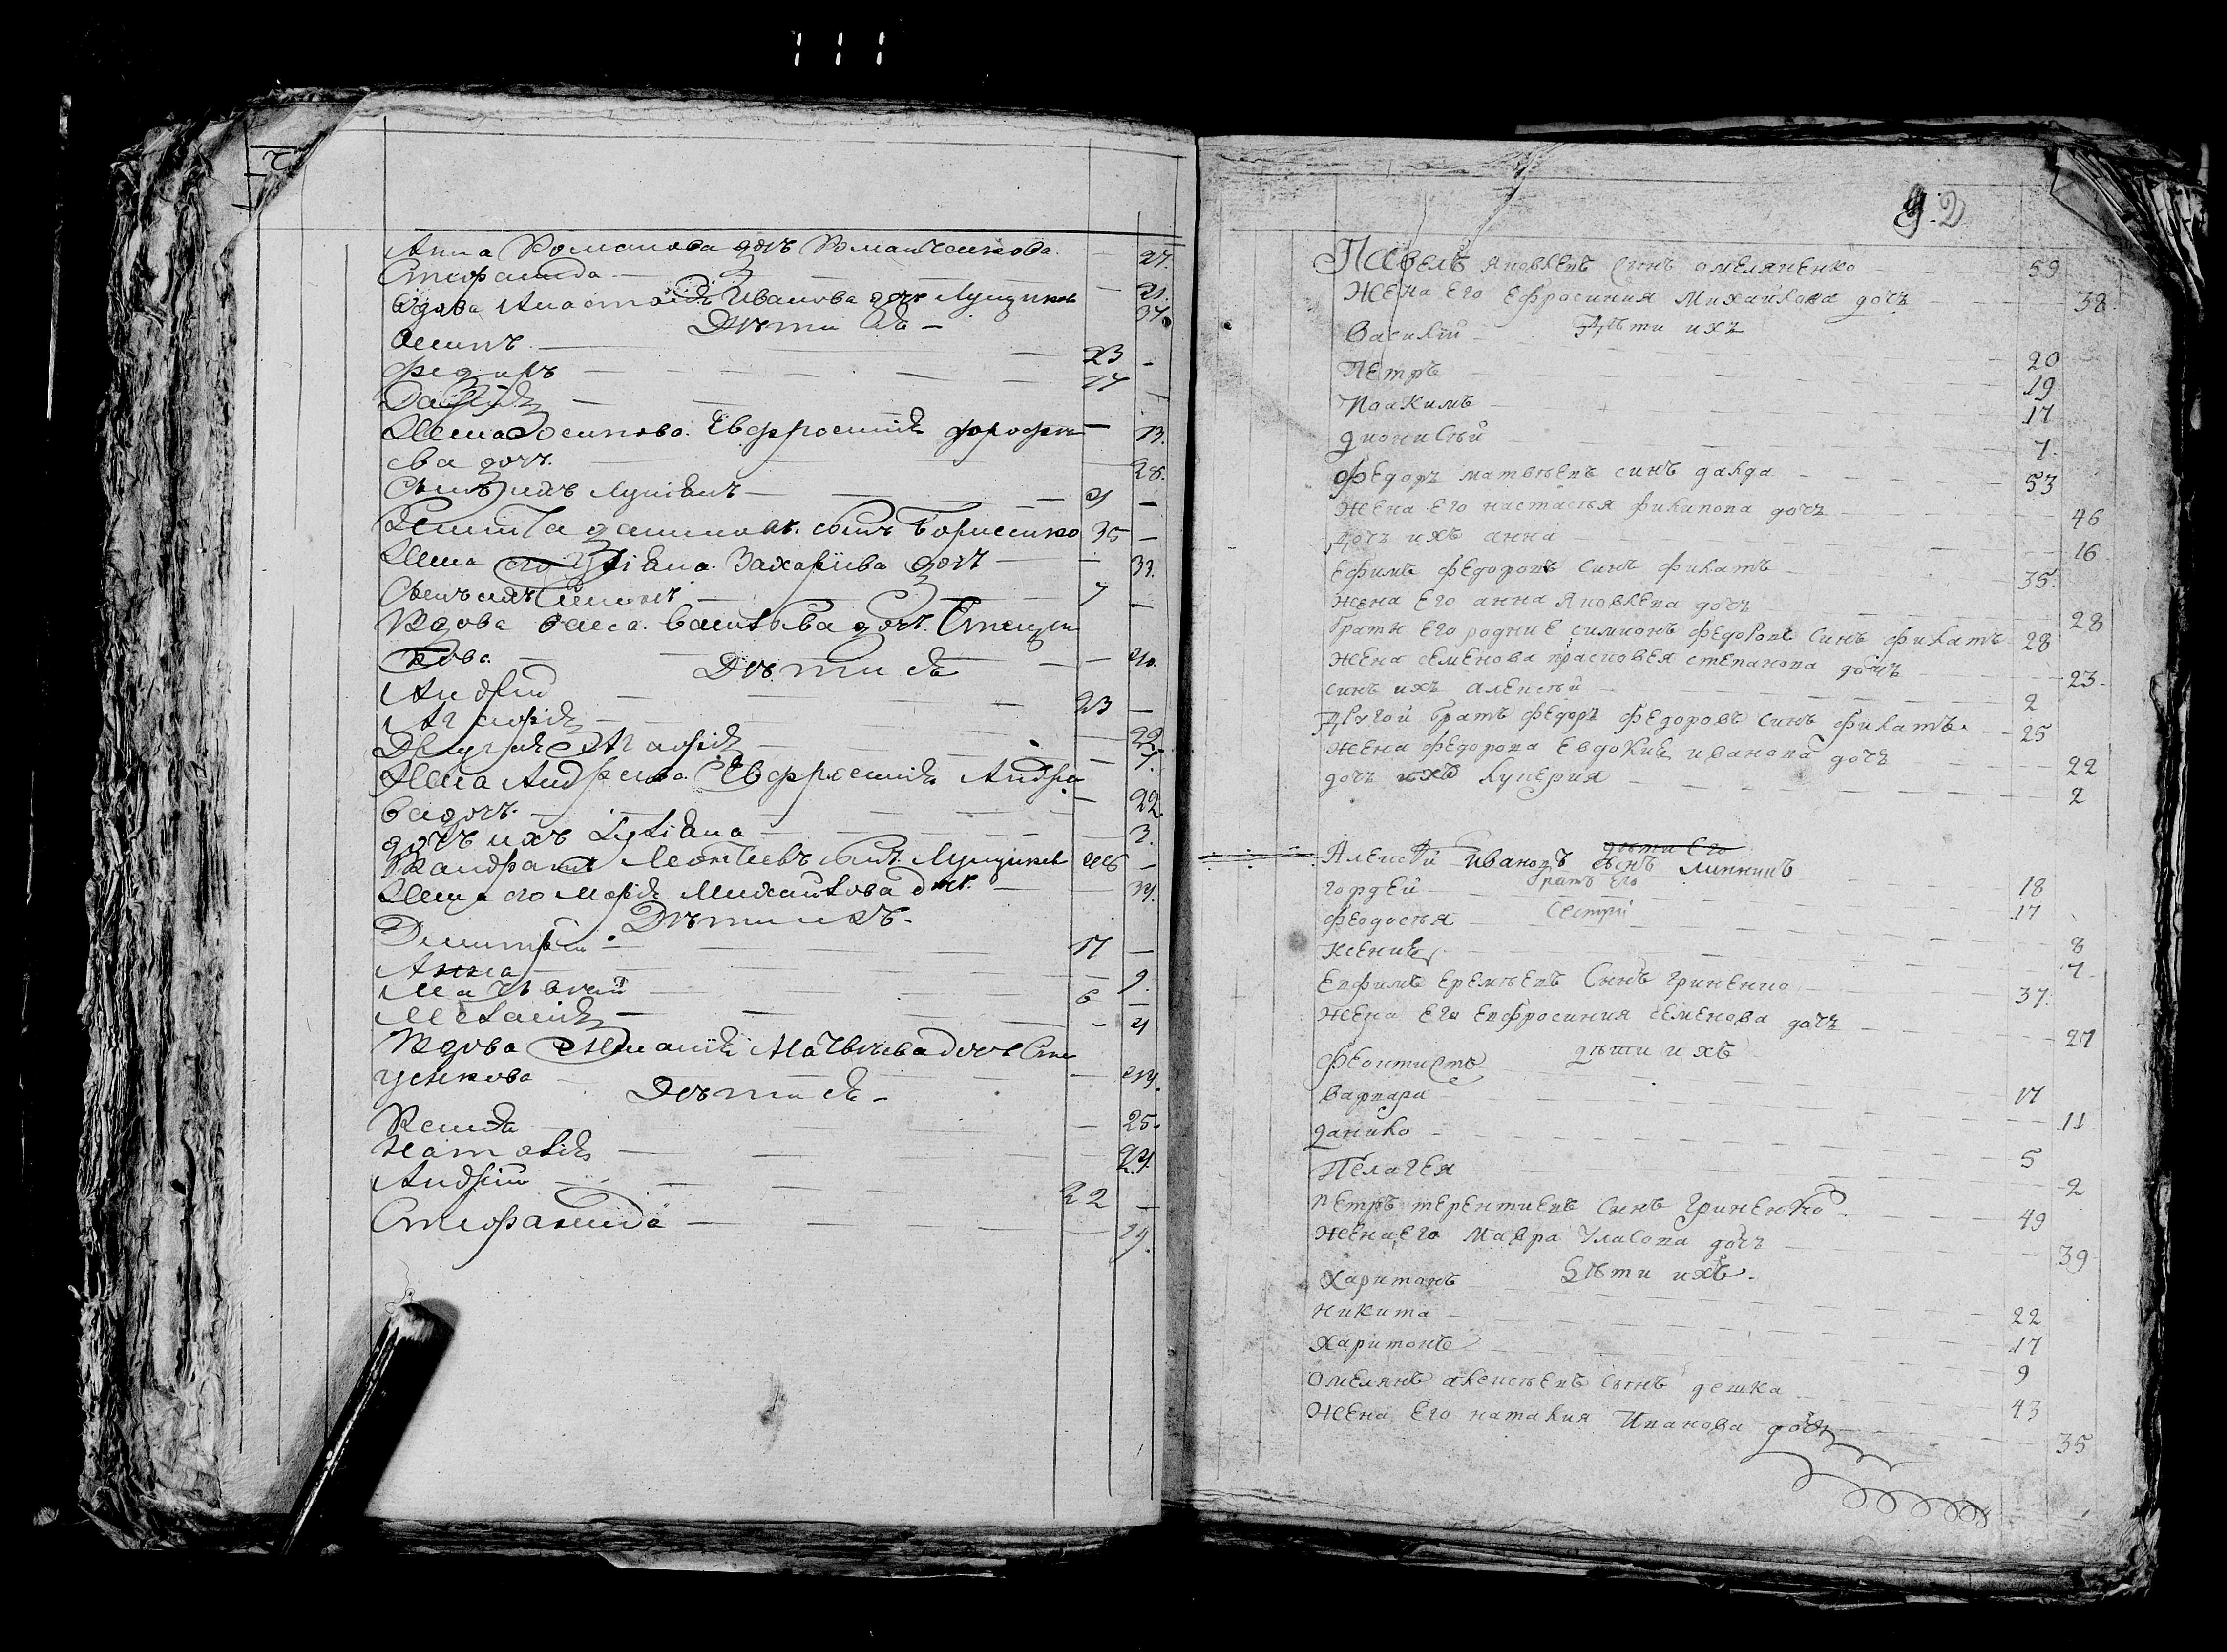 Анна Романова дочъ Романченкова — 27.
Стефанида — 21.
вдова Анастасія Иванова дочъ Лущикова 37.
Дѣти ея —
Осипъ — 23 —
Федиръ — 17 —
Давидъ —
Жена Осипова Евфросинія дорофее — 13.
ва дочъ. — 28.
Сынъ ихъ Лукіянъ — 4 —
Никита даниловъ сынъ Борисенко 35 —
Жена его Уліяна Захаріива дочъ — 33.
Сынъ ихъ Симонъ — 7 —
Вдова Васса Василіева дочъ. Стецен
кова — 40.
Дѣти ея
Андрій — 23 —
Агафія — 22.
Другая Агафія — 7.
Жена Андреева Евфросинія Андрее
ва дочъ. — 22.
дочъ ихъ Уліяна — 3.
Кондратъ Леонтіевъ сынъ Лущикъ 46 —
Жена его Марія Михайлова дочъ. — 34.
Дѣти ихъ —
Димитрій — 17 —
Анна — 9.
Матвѣй — 6 —
Меланія — 4
Вдова Матвѣева дочъ Сте
ценкова — 44.
Дѣти ея —
Ксенія — 25.
Наталія — 24.
Андрій — 22 —
Стефанида — 19.
92
Павелъ яковлевъ синъ омеляненко 59
жена его ефросиния Михайлова дочъ 38.
Дѣти ихъ
Василий 20
Петръ 19
Иоакимъ 17
дионисѣй 7
федоръ матвѣевъ синъ далда 53
жена его настасъя филипова дочъ 46
дочъ ихъ анна 16
ефимъ федоровъ синъ филатъ 35.
жена его анна яковлева дочъ 28
брати его родние симионъ федоровъ синъ филатъ 28
жена семенова прасковея степанова дочъ 23.
синъ ихъ алексѣй 2
другой братъ федоръ федоровъ синъ филатъ 25
жена федорова евдокия иванова дочъ 22
дочъ ихъ лукерия 2
дѣти его
Алексѣй Ивановъ сынъ 18
братъ его
гордѣй 17
сестри
феодосъя 8
ксения 7
ефимъ еремѣевъ сынъ гриненко 37.
жена его ефросиния семенова дочъ 27
дѣти ихъ
феоктистъ 17
варвара 11
данило 5
Пелагея 2
Петръ терентиевъ сынъ гриненко 49
жена его Мавра Уласова дочъ 39
дѣти ихъ.
харитонъ 22
никита 17
харитонъ 9
омелянъ алексѣевъ сынъ дешка 43
жена его наталия Иванова дочъ 35